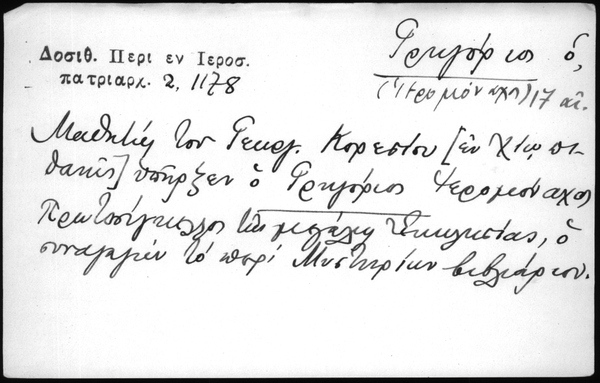 Δοσιθ. Περι εν Ιεροσ.
πατριαρχ. 2, 1178
Γρηγόριος ὁ,
(Ἱερομόναχος) 17 αἰ.
Μαθητὴς τοῦ Γεωργ. Κορεσίου [ἐν Χίῳ πι-
θανῶς] ὑπῆρξεν ὁ Γρηγόριος Ἱερομόναχος
Πρωτοσύγκελλος τῆς μεγάλης Ἐκκλησίας, ὁ
συναγαγὼν τὸ περὶ Μυστηρίων βιβλιάριον.